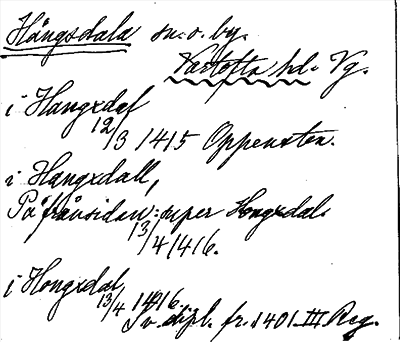 Hångsdala sn. o. by.
Vartofta hd. Vg.
i Hangxdal
12/3 1415 Oppensten.
i Hangxdall,
På frånsidan: super Hongxdal
13/4 1416.
i Hongxdal
13/4 1416.
Sv. dipl. fr. 1401 III Reg.